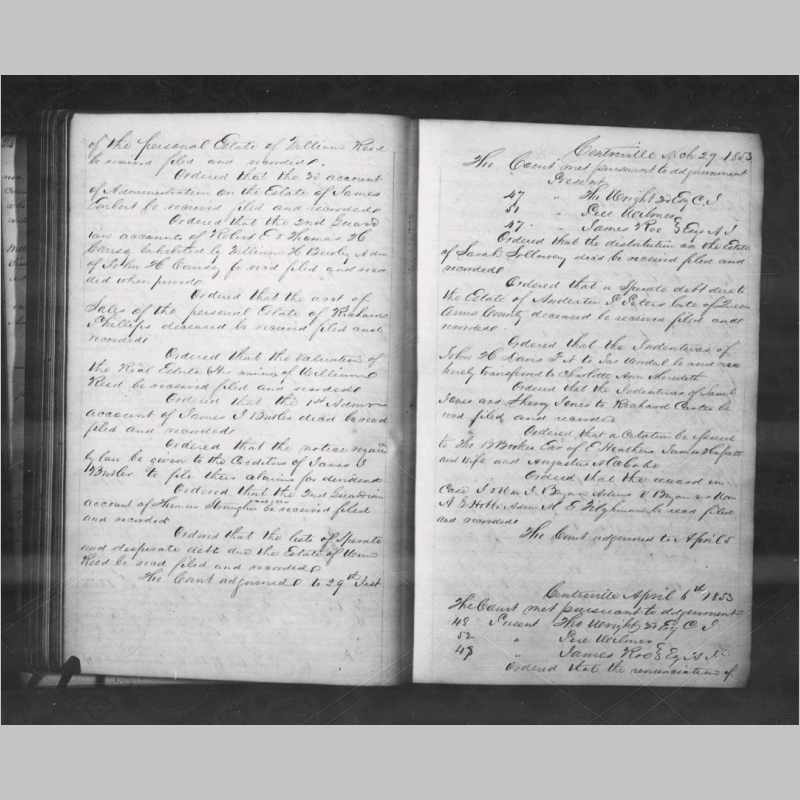 of the personal Estate of William Reed
be received filed and recorded.
Ordered that the account
of Administration on the Estate of James
be received filed and recorded
Ordered that the 2nd Guard
ians accounts of Robert E & Thomas H
exhibited by William H Adm
of John H be read filed and recor
ded when proved
Ordered that the acct of
Sales of the personal Estate of
Phillips deceased be received filed and
recorded
Ordered that the valuation of
the Real Estate of William
Reed be received filed and recorded
Ordered that the 1st Admn
account of James I Butler decd be read
filed and recorded
Ordered that the notice required
by law be given to the Creditors of James I
Butler to file their claims for dividend
Ordered that the 2nd Guardian
account of Thomas be received filed
and recorded
Ordered that the list of Sperate
and desperate debts due the Estate of Wm
Reed be read filed and recorded
The Court adjourned to 29th Inst
Centreville Mch 29 1853
The Court met pursuant to adjournment
Present
47 " Tho Wright 3d Esq C. J
51 " Pere Wilmer
47 " James Roe Esqs A J
Ordered that the distribution on the Estate
of Sarah decd be received filed and
recorded
Ordered that a Sperate debt due to
the Estate of P late of Queen
Anns County deceased be received filed and
recorded
Ordered that the Indentures of
John H to Jas be and are
hereby transferred to Charlotte Ann Meredith
Ordered that the Indentures of Saml
Jones and Henry Jones to Richard Carter be
read filed and recorded
Ordered that a Citation be issued
to Tho B Exr of E James
and wife and Augustus
Ordered that the award in
Case I & Wm I Bryan Adms V Bryan & Wm
A E Adm M E be read filed
and recorded
The Court adjourned to April 5
Centreville April 5th 1853
The Court met pursuant to adjournment
48 Present Tho Wright 3d Esq C J
52 " Pere Wilmer
48 " James Roe Esqs A J
Ordered that the renunciation of